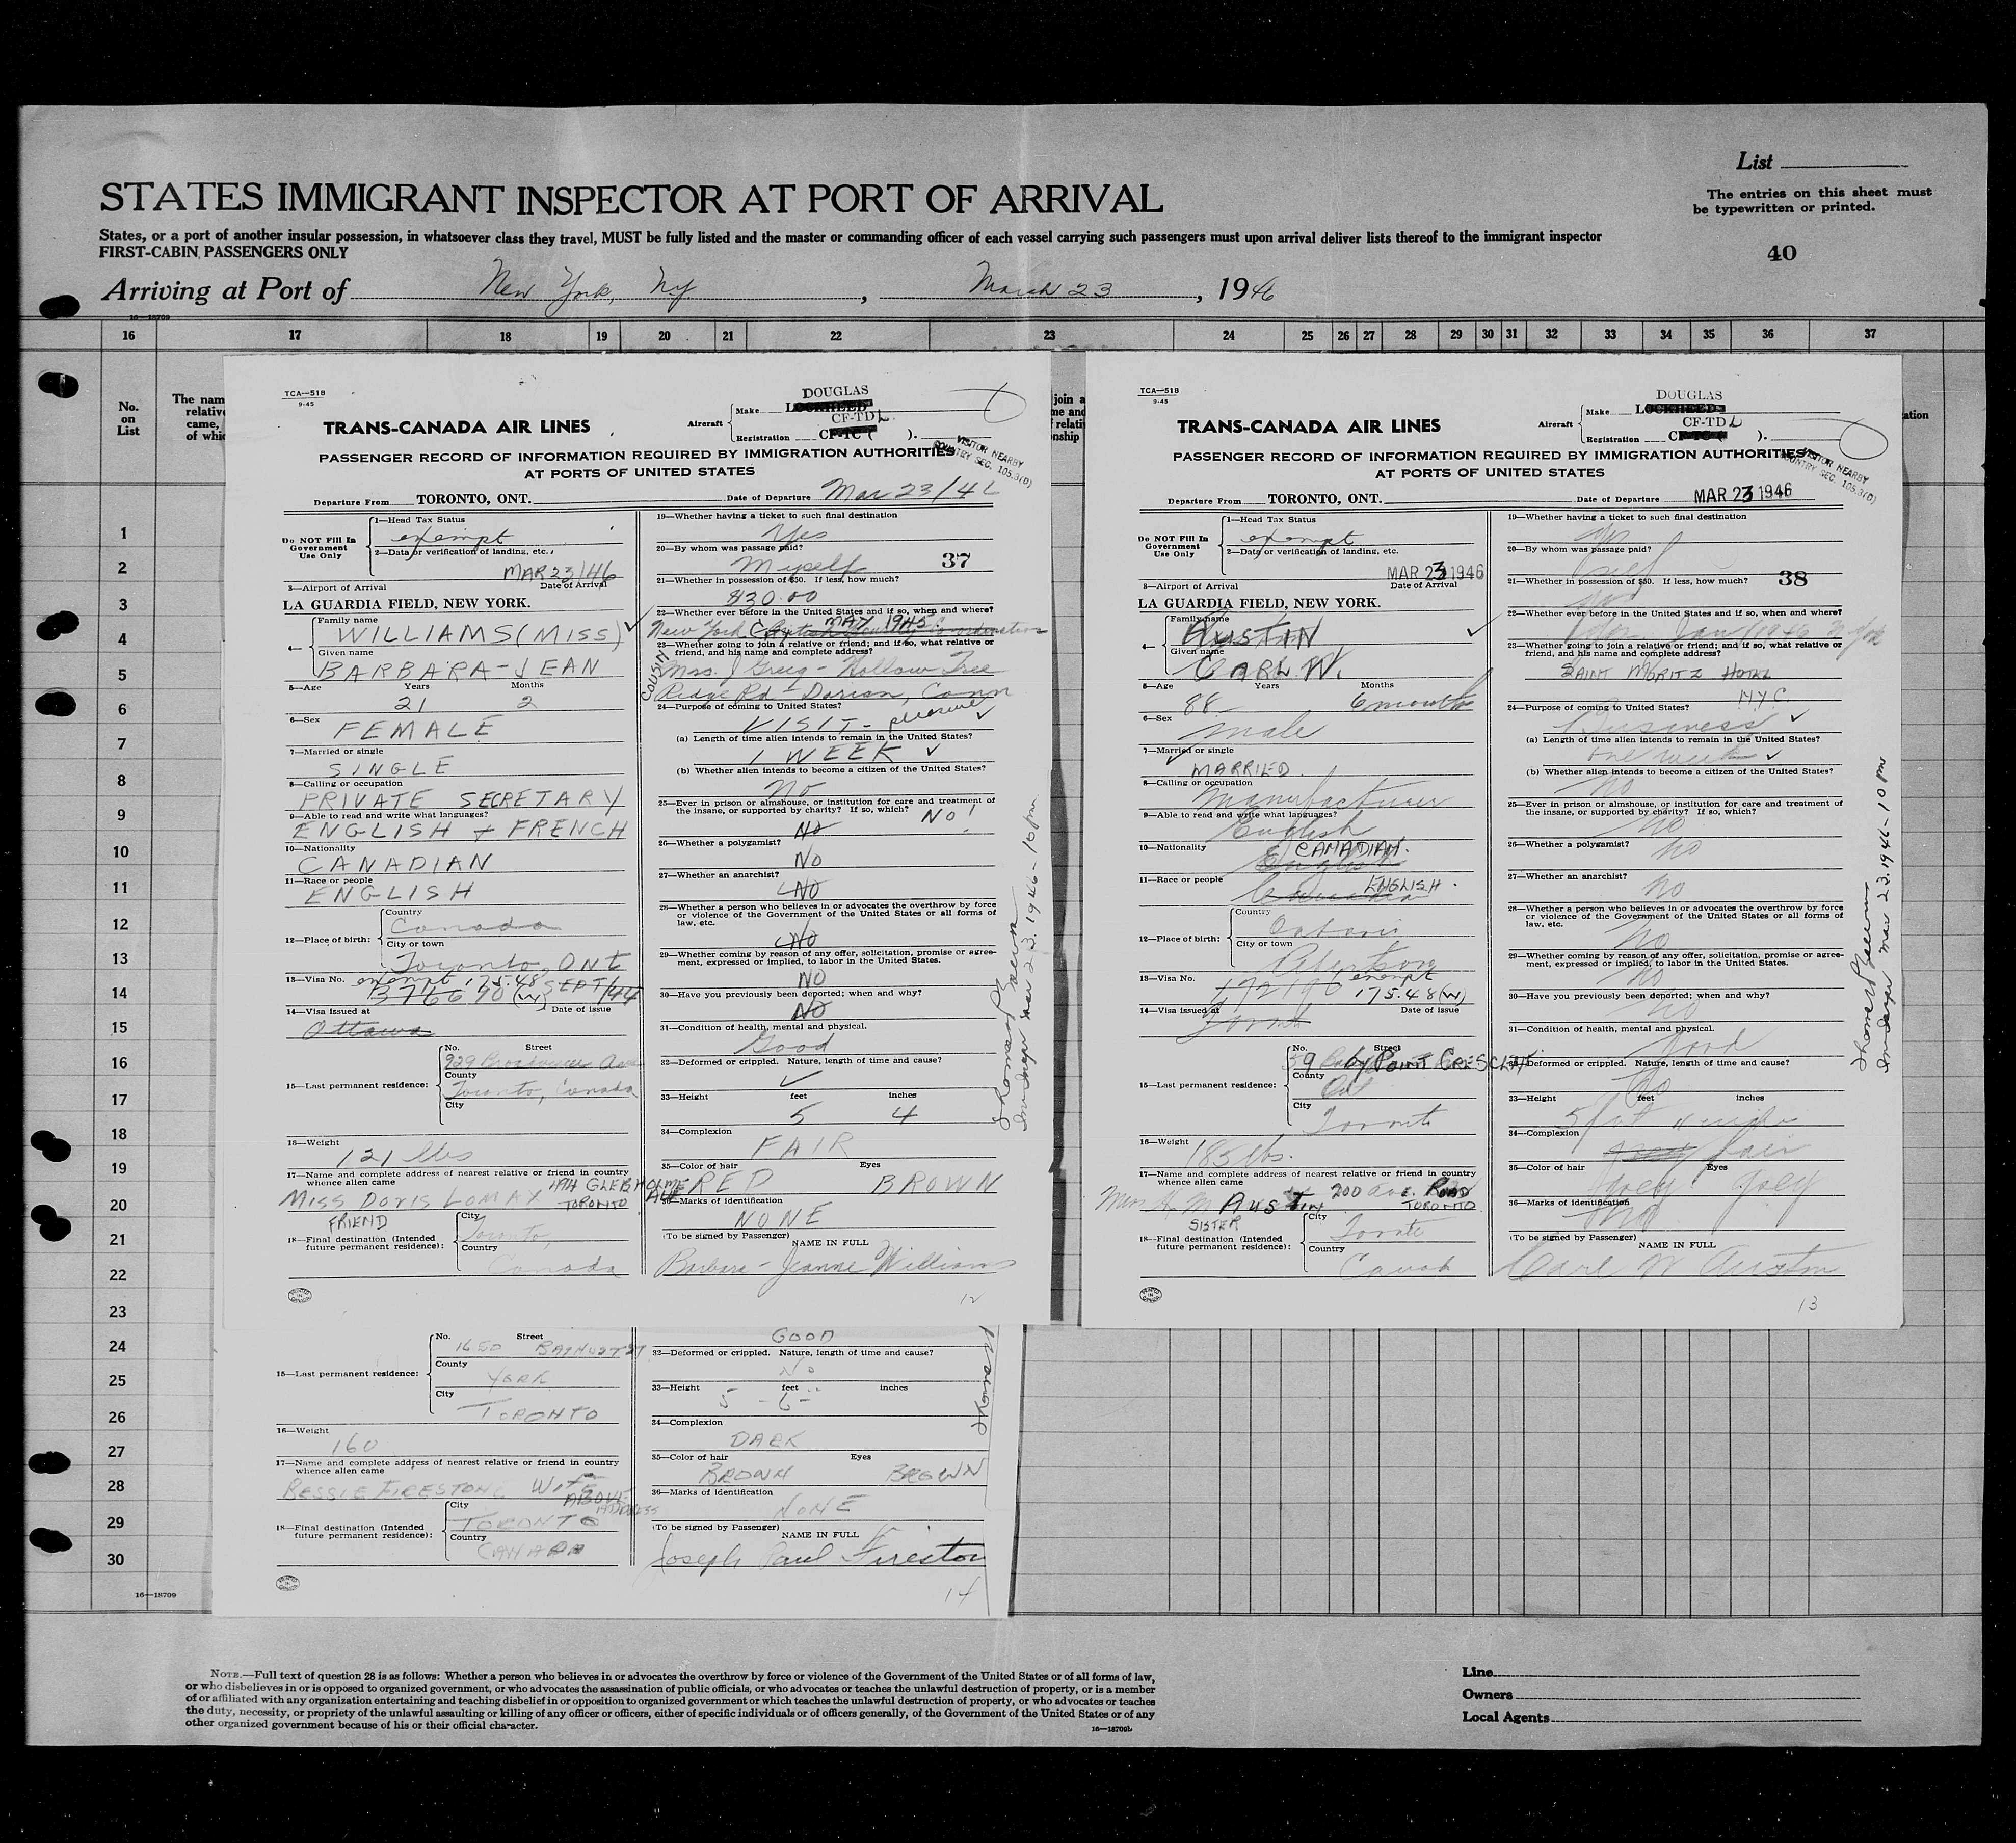 List
STATES IMMIGRANT INSPECTOR AT PORT OF ARRIVAL
The entries on this sheet must
be typewritten or printed.
States, or a port of another insular possession, in whatsoever class they travel, MUST be fully listed and the master or commanding officer of each vessel carrying such passengers must upon arrival deliver lists thereof to the immigrant inspector
FIRST-CABIN PASSENGERS ONLY
40
Arriving at Port of New York, NY, March 23, 1946
16—18709
16 17 18 19 20 21 22 23 24 25 26 27 28 29 30 31 32 33 34 35 36 37
No.
on
List
The nam
relativ
came,
of whic
1
2
3
4
5
6
7
8
9
10
11
12
13
14
15
16
17
18
19
20
21
22
23
24
25
26
27
28
29
30
16—18709
TCA—518
9-45
DOUGLAS
Aircraft Make LOCKHEED
CF-TDL
Registration CF-TC ( ).
TRANS-CANADA AIR LINES
VISITOR NEARBY
COUNTRY SEC. 105.3(D)
PASSENGER RECORD OF INFORMATION REQUIRED BY IMMIGRATION AUTHORITIES
AT PORTS OF UNITED STATES
Departure From TORONTO, ONT. Date of Departure Mar 23/46
Do NOT Fill In
Government
Use Only
1—Head Tax Status
exempt
2—Data or verification of landing, etc.
MAR 23/46
3—Airport of Arrival Date of Arrival
LA GUARDIA FIELD, NEW YORK.
4— Family name
WILLIAMS (MISS)
Given name
BARBARA-JEAN
5—Age Years Months
21 2
6—Sex
FEMALE
7—Married or single
SINGLE
8—Calling or occupation
PRIVATE SECRETARY
9—Able to read and write what languages?
ENGLISH + FRENCH
10—Nationality
CANADIAN
11—Race or people
ENGLISH
12—Place of birth: Country
Canada
City or town
Toronto, ONt
13—Visa No. exempt 175.48
(W) SEPT/44
14—Visa issued at Date of issue
Ottawa
15—Last permanent residence: No. Street
929 Broadview Ave
County
Toronto, Canada
City
16—Weight
121 lbs
17—Name and complete address of nearest relative or friend in country
whence alien came
MISS DORIS LOMAX GLEBHOLME
TORONTO
FRIEND
18—Final destination (Intended
future permanent residence): City
Toronto,
Country
Canada
19—Whether having a ticket to such final destination
Yes
20—By whom was passage paid?
Myself
37
21—Whether in possession of $50. If less, how much?
$30.00
22—Whether ever before in the United States and if so, when and where?
MAY 1945
New York City
23—Whether going to join a relative or friend; and if so, what relative or
friend, and his name and complete address?
COUSIN
Mrs. J Greig - Hollow Tree
Ridge Rd - Darian, Conn
24—Purpose of coming to United States?
VISIT - pleasure
(a) Length of time alien intends to remain in the United States?
1 WEEK
(b) Whether alien intends to become a citizen of the United States?
No
25—Ever in prison or almshouse, or institution for care and treatment of
the insane, or supported by charity? If so, which?
No NO!
26—Whether a polygamist?
No
27—Whether an anarchist?
No
28—Whether a person who believes in or advocates the overthrow by force
or violence of the Government of the United States or all forms of
law, etc.
No
29—Whether coming by reason of any offer, solicitation, promise or agree-
ment, expressed or implied, to labor in the United States.
NO
30—Have you previously been deported; when and why?
No
31—Condition of health, mental and physical.
Good
32—Deformed or crippled. Nature, length of time and cause?
33—Height feet inches
5 4
34—Complexion
FAIR
35—Color of hair Eyes
RED BROWN
36—Marks of identification
NONE
(To be signed by Passenger) NAME IN FULL
Barbara-Jeanne Williams
12
Mar 23.1946-10pm
TCA—518
9-45
DOUGLAS
Aircraft Make LOCKHEED
CF-TDL
Registration CF-TC ( ).
TRANS-CANADA AIR LINES
VISITOR NEARBY
COUNTRY SEC. 105.3(D)
PASSENGER RECORD OF INFORMATION REQUIRED BY IMMIGRATION AUTHORITIES
AT PORTS OF UNITED STATES
Departure From TORONTO, ONT. Date of Departure MAR 23 1946
Do NOT Fill In
Government
Use Only
1—Head Tax Status
exempt
2—Data or verification of landing, etc.
MAR 23 1946
3—Airport of Arrival Date of Arrival
LA GUARDIA FIELD, NEW YORK.
4— Family name
AUSTIN
Given name
CARL W.
5—Age Years Months
88 6 months
6—Sex
male
7—Married or single
MARRIED.
8—Calling or occupation
Manufacturer
9—Able to read and write what languages?
English
10—Nationality
CANADIAN.
English
11—Race or people
ENGLISH.
Canadian
12—Place of birth: Country
Ontario
City or town
13—Visa No. exempt
172190 175.48(W)
14—Visa issued at Date of issue
Toronto
15—Last permanent residence: No. Street
59 POINT CRESCENT
County
Ont
City
Toronto
16—Weight
185 lbs.
17—Name and complete address of nearest relative or friend in country
whence alien came
Mrs. AUSTIN 200 Ave. ROAD
TORONTO
SISTER
18—Final destination (Intended
future permanent residence): City
Toronto
Country
Canada
19—Whether having a ticket to such final destination
yes
20—By whom was passage paid?
self
21—Whether in possession of $50. If less, how much?
38
yes
22—Whether ever before in the United States and if so, when and where?
yes Jan 1946 N York
23—Whether going to join a relative or friend; and if so, what relative or
friend, and his name and complete address?
SAINT MORITZ HOTEL
NYC
24—Purpose of coming to United States?
Business
(a) Length of time alien intends to remain in the United States?
one week
(b) Whether alien intends to become a citizen of the United States?
No
25—Ever in prison or almshouse, or institution for care and treatment of
the insane, or supported by charity? If so, which?
No
26—Whether a polygamist?
No
27—Whether an anarchist?
No
28—Whether a person who believes in or advocates the overthrow by force
or violence of the Government of the United States or all forms of
law, etc.
No
29—Whether coming by reason of any offer, solicitation, promise or agree-
ment, expressed or implied, to labor in the United States.
No
30—Have you previously been deported; when and why?
No
31—Condition of health, mental and physical.
Good
32—Deformed or crippled. Nature, length of time and cause?
No
33—Height feet inches
34—Complexion
fair
35—Color of hair Eyes
Grey Grey
36—Marks of identification
No
(To be signed by Passenger) NAME IN FULL
Carl W Austin
13
Mar 23.1946-10pm
15—Last permanent residence: No. Street
1650 BATHURST ST
County
YORK
City
TORONTO
16—Weight
160
17—Name and complete address of nearest relative or friend in country
whence alien came
BESSIE FIRESTONE WIFE
ABOVE
ADDRESS
18—Final destination (Intended
future permanent residence): City
TORONTO
Country
CANADA
GOOD
32—Deformed or crippled. Nature, length of time and cause?
No
33—Height feet inches
5 - 6
34—Complexion
DARK
35—Color of hair Eyes
BROWN BROWN
36—Marks of identification
NONE
(To be signed by Passenger) NAME IN FULL
Joseph Paul Fireston
14
NOTE.—Full text of question 28 is as follows: Whether a person who believes in or advocates the overthrow by force or violence of the Government of the United States or of all forms of law,
or who disbelieves in or is opposed to organized government, or who advocates the assassination of public officials, or who advocates or teaches the unlawful destruction of property, or is a member
of or affiliated with any organization entertaining and teaching disbelief in or opposition to organized government or which teaches the unlawful destruction of property, or who advocates or teaches
the duty, necessity, or propriety of the unlawful assaulting or killing of any officer or officers, either of specific individuals or of officers generally, of the Government of the United States or of any
other organized government because of his or their official character.
16—18709b
Line
Owners
Local Agents